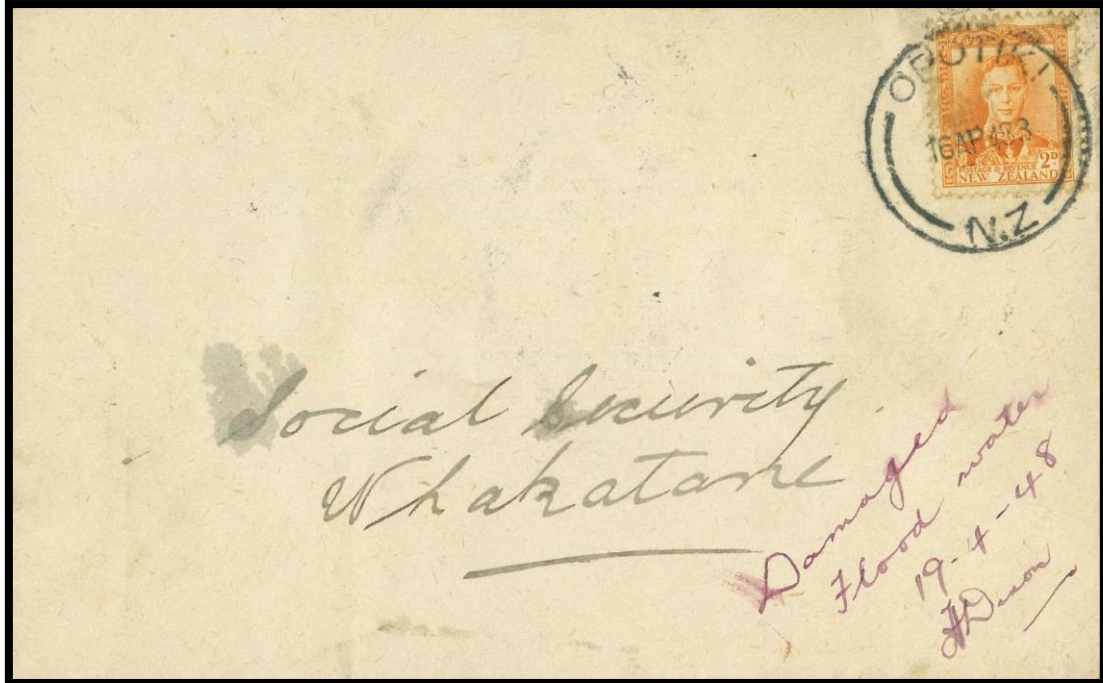 OPOTIKI
16 AP 48
2D
POSTAGE & REVENUE
NEW ZEALAND
N.Z
Social Security
Whakatane
Damaged
Flood water
19-4-48